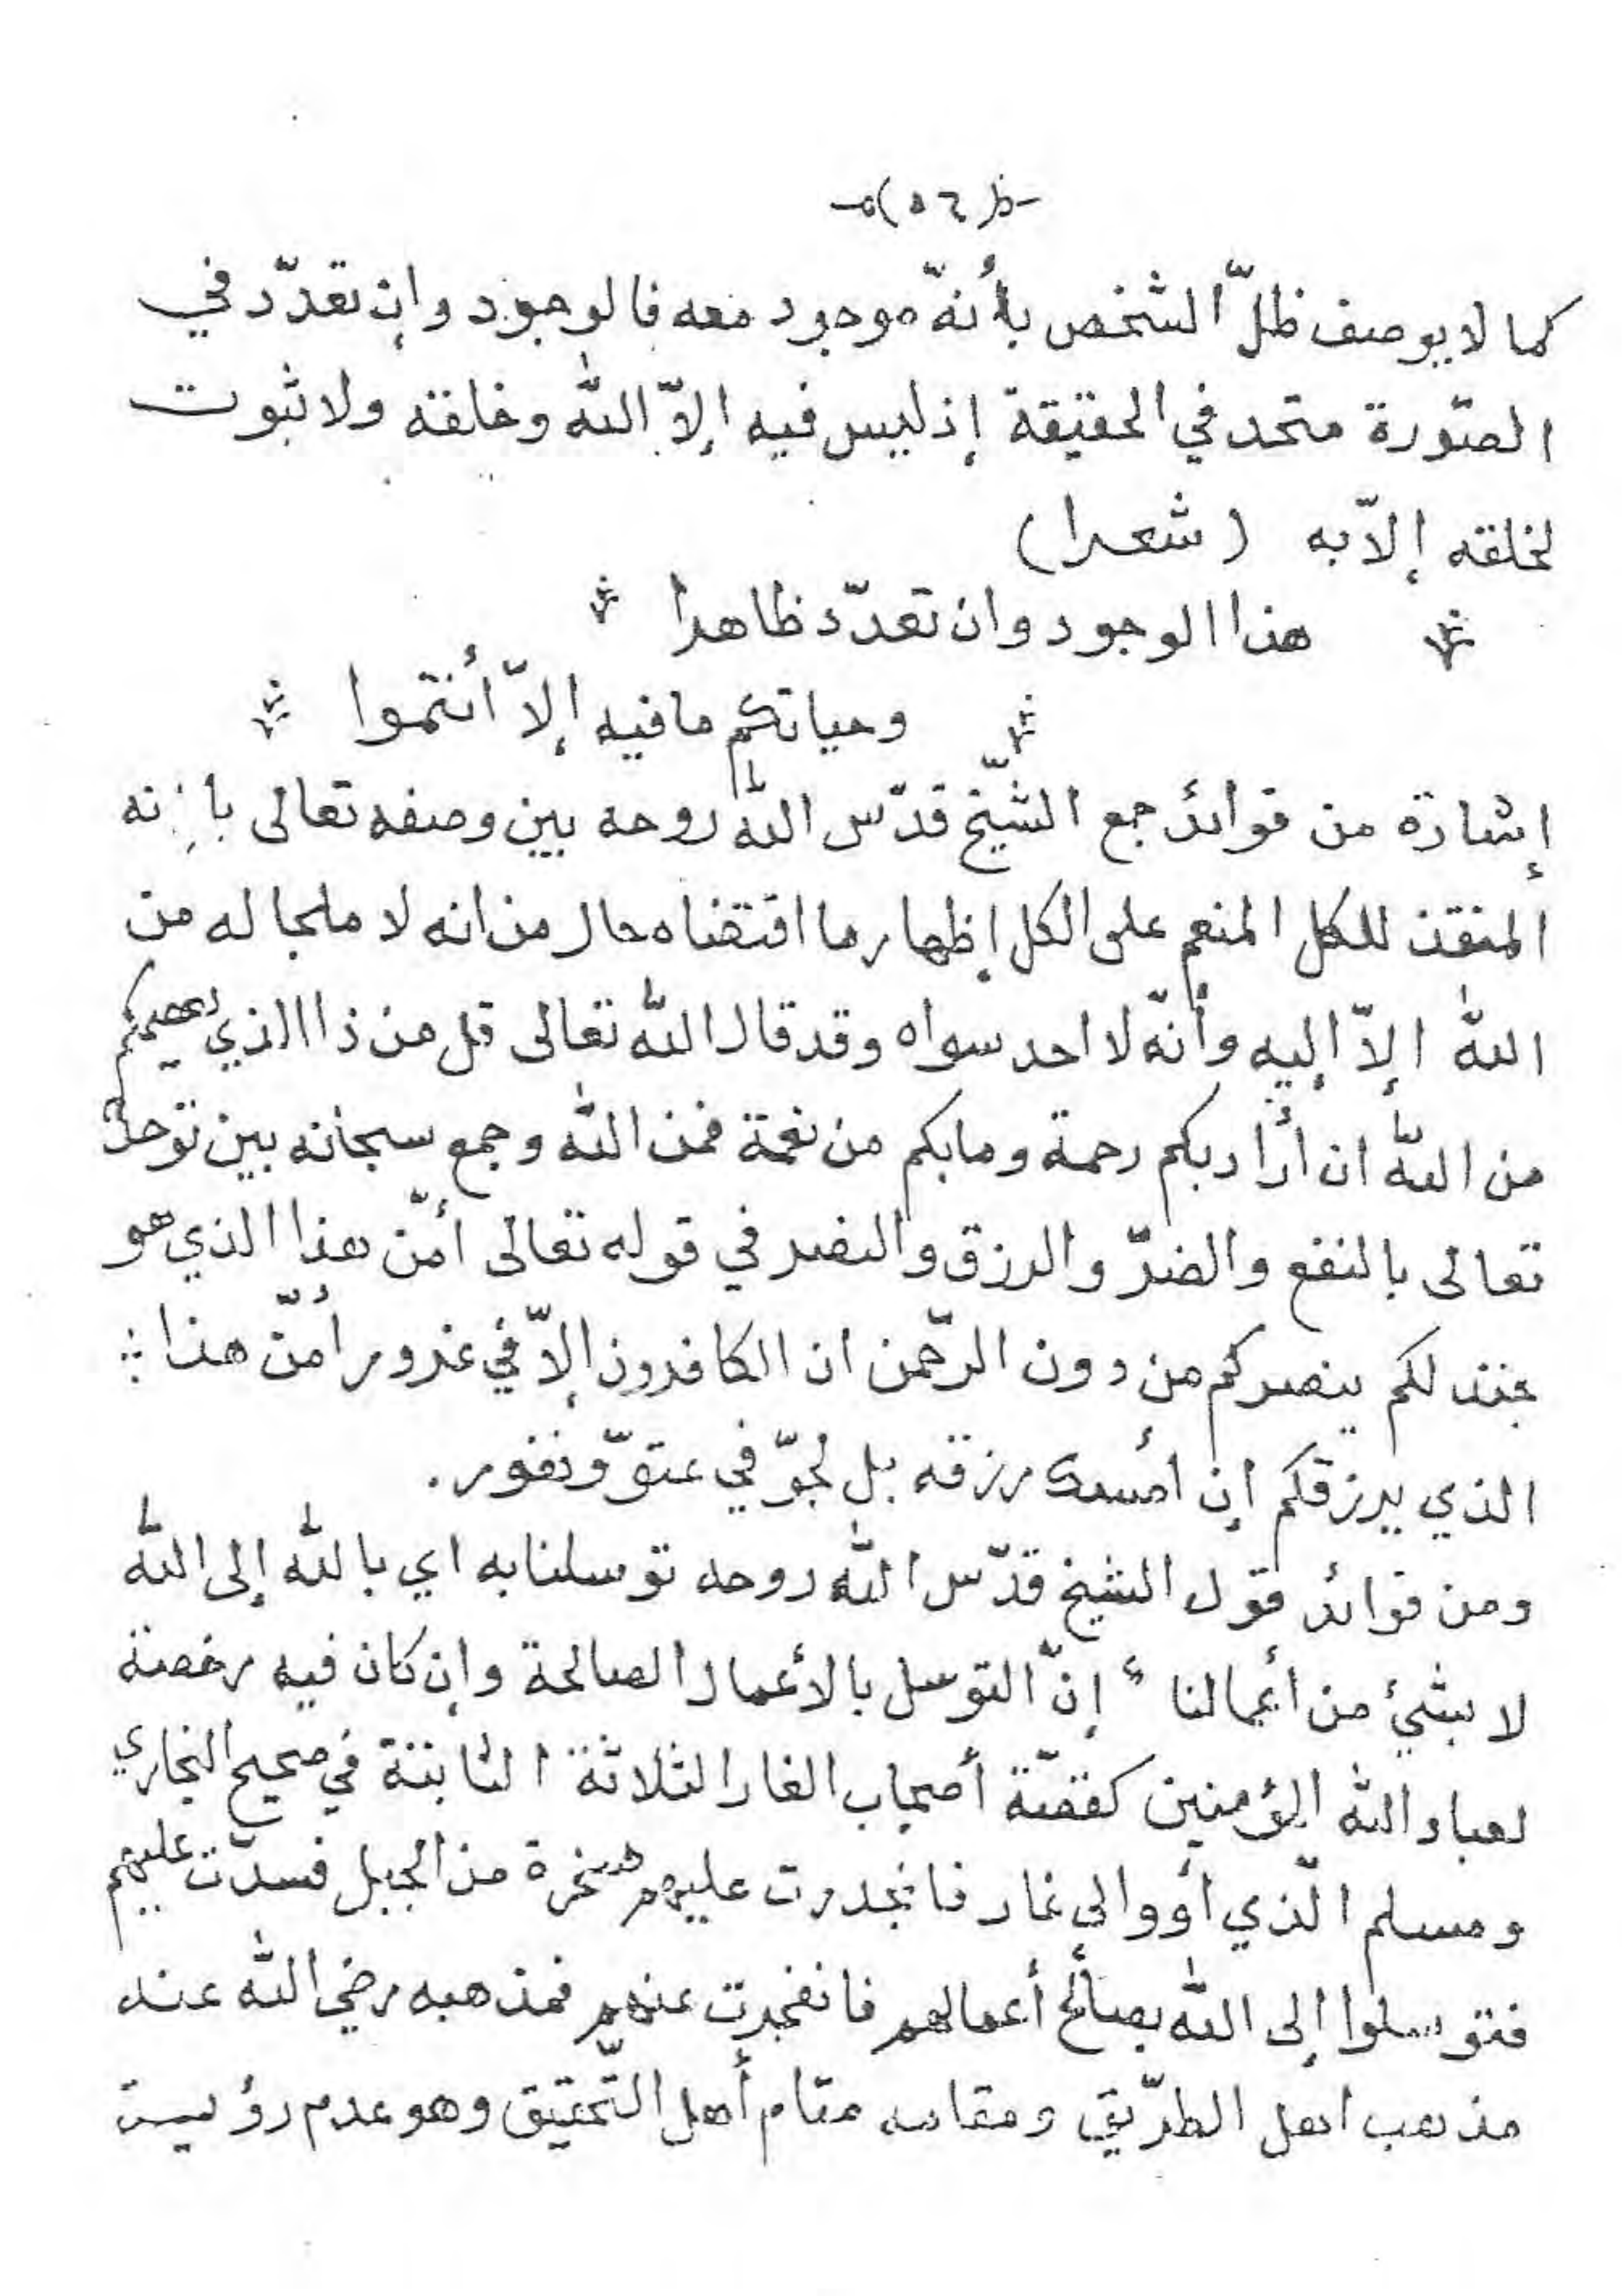 (٥٦)
كما لا يوصف ظلّ الشخص بأنهّ موجود معه فالوجود وإن تعدّد في
الصّورة متحد في الحقيقة إذ ليس فيه إلاّ الله وخلقه ولا ثبوت
لخلقه إلاّ به (شعرا)
هذا الوجود وان تعدّد ظاهرا
وحياتكم ما فيه إلاّ أنتموا
إشارة من فوائد جمع الشّيخ قدّس الله روحه بين وصفه تعالى بانه
المنقذ للكل المنعم على الكل إظهار ما اقتضاه حال من انه لا ملجا له من
الله إلاّ إليه وأنّه لا احد سواه وقد قال الله تعالى قل من ذا الذي يعصمكم
من الله ان أراد بكم رحمة وما بكم من نعمة فمن الله وجمع سبحانه بين توحده
تعالى بالنفع والضرّ والرزق والنصر في قوله تعالى أمّن هذا الذي هو
جند لكم ينصركم من دون الرّحمن ان الكافرون إلاّ في غرور أمّن هذا
الذي يرزقكم إن أمسك رزقه بل لجوّ في عتوّ ونفور.
ومن فوائد قول الشيخ قدّس الله روحه توسلنا به اي بالله إلى الله
لا بشيئ من أعمالنا إنّ التوسل بالأعمال الصالحة وإن كان فيه رخصة
لعباد الله المؤمنين كقصّة أصحاب الغار الثلاثة الثابتة في صحيح البخاري
ومسلم الّذي أووا الى غار فانحدرت عليهم صخرة من الجبل فسدّت عليهم
فتوسلوا إلى الله بصالح أعمالهم فانفجرت عنهم فمذهبه رضي الله عنه
مذهب اهل الطرّيق ومقامه مقام أهل التّحقيق وهو عدم رؤيـة